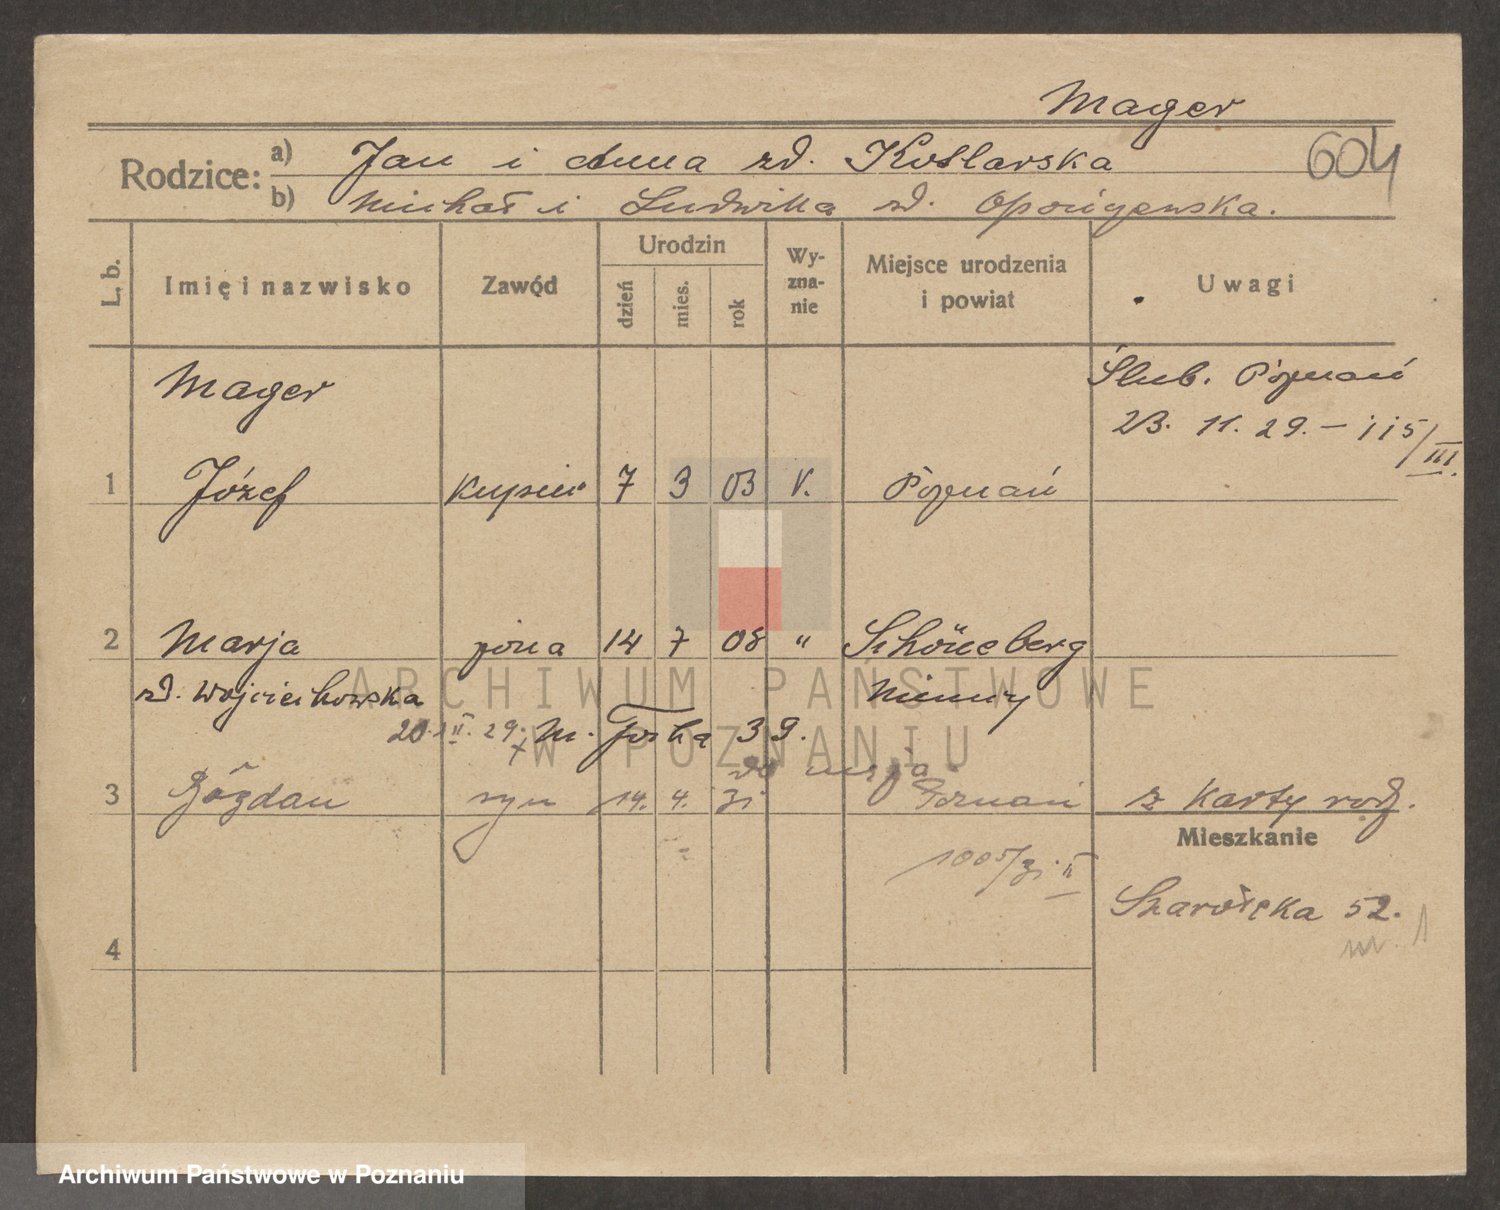 Mager
604
Rodzice: a) Jan i Anna zd. Kotlarska
b) Michał i Ludwika zd.
L. b. Imię i nazwisko Zawód Urodzin dzień mies. rok Wy-zna-nie Miejsce urodzenia i powiat Uwagi
Mager Ślub. Poznań
23. 11. 29. – 115/III.
1 Józef kupiec 7 3 03 r. Poznań
2 Marja żona 14 7 08 " Schöneberg
zd. Wojciechowska Niemcy
29. m. 39.
do męża
3 Bogdan syn 14. 4. 31 Poznań z karty rodz.
Mieszkanie
1005/31 II
52.
m. 1
4
ARCHIWUM PAŃSTWOWE
W POZNANIU
Archiwum Państwowe w Poznaniu